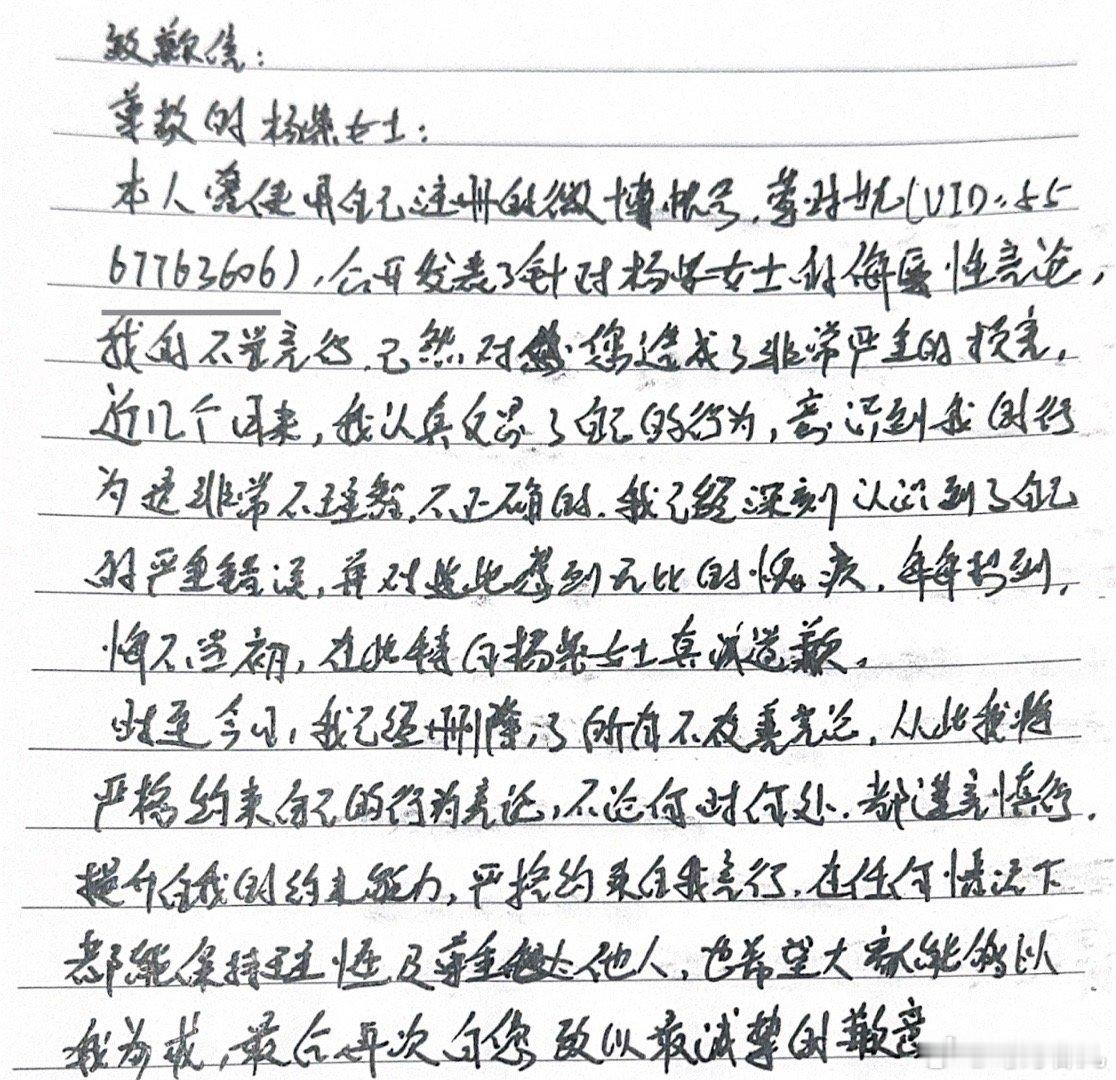 致歉信:
尊敬的杨紫女士:
本人曾使用自己注册的微博帐号,
(UID:55
67763606),公开发表了针对杨紫女士的侮辱性言论,
我的不当言行已然对您造成了非常严重的损害,
近几个月来,我认真反思了自己的行为,意识到我的行
为是非常不理智,不正确的.我已经深刻认识到了自己
的严重错误,并对此感到无比的愧疚,每每想到,
悔不当初,在此特向杨紫女士真诚道歉.
时至今日,我已经删除了所有不友善言论,从此我将
严格约束自己的行为言论,不论何时何处.都谨言慎行.
提升自我的约束能力,严格约束自我言行.在任何情况下
都能保持理性及尊重他人,也希望大家能够以
我为戒,最后再次向您致以最诚挚的歉意